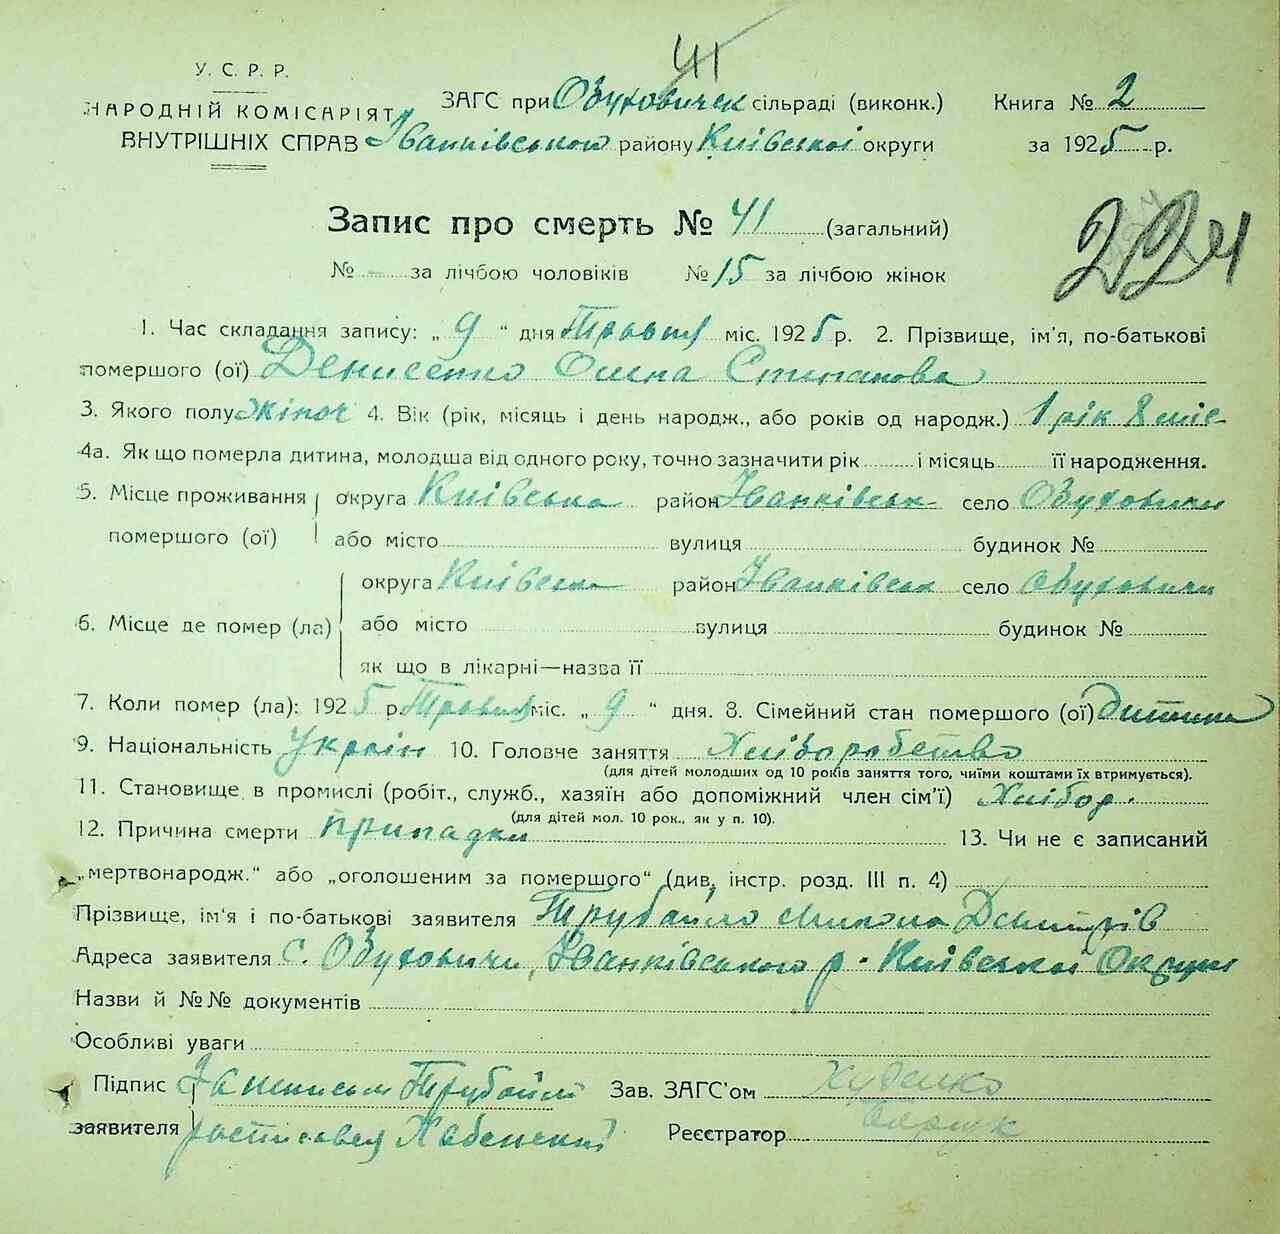 41
У. С. Р. Р.
НАРОДНІЙ КОМІСАРІЯТ
ВНУТРІШНІХ СПРАВ
ЗАГС при Обуховичек сільраді (виконк.) Книга № 2
Іванківського району Київської округи за 1925 р.
Запис про смерть № 41 (загальний)
224
№ за лічбою чоловіків № 15 за лічбою жінок
1. Час складання запису: „ 9 “ дня Травня міс. 1925 р. 2. Прізвище, ім'я, по-батькові
помершого (ої) Денисенко Олена Степанова
3. Якого полу жіноч 4. Вік (рік, місяць і день народж., або років од народж.) 1 рік 8 міс
4а. Як що померла дитина, молодша від одного року, точно зазначити рік і місяць її народження.
5. Місце проживання округа Київська район Іванківськ село Обуховичи
помершого (ої) або місто вулиця будинок №
округа Київськ район Іванківськ село Обуховичи
6. Місце де помер (ла) або місто вулиця будинок №
як що в лікарні—назва її
7. Коли помер (ла): 1925 р. Травня міс. „ 9 “ дня. 8. Сімейний стан помершого (ої) Дитина
9. Національність Україн 10. Головче заняття Хліборобство
(для дітей молодших од 10 років заняття того, чиїми коштами їх втримується).
11. Становище в промислі (робіт., служб., хазяїн або допоміжний член сім'ї) Хлібор.
(для дітей мол. 10 рок., як у п. 10).
12. Причина смерти припадки 13. Чи не є записаний
„мертвонародж.“ або „оголошеним за помершого“ (див. інстр. розд. III п. 4)
Прізвище, ім'я і по-батькові заявителя Трубайло Микола Дмитрів
Адреса заявителя С. Обуховичи, Іванківського р. Київської Округи
Назви й №№ документів
Особливі уваги
Підпис За неписьм Трубайло Зав. ЗАГС'ом Худенко
заявителя росписався Реєстратор